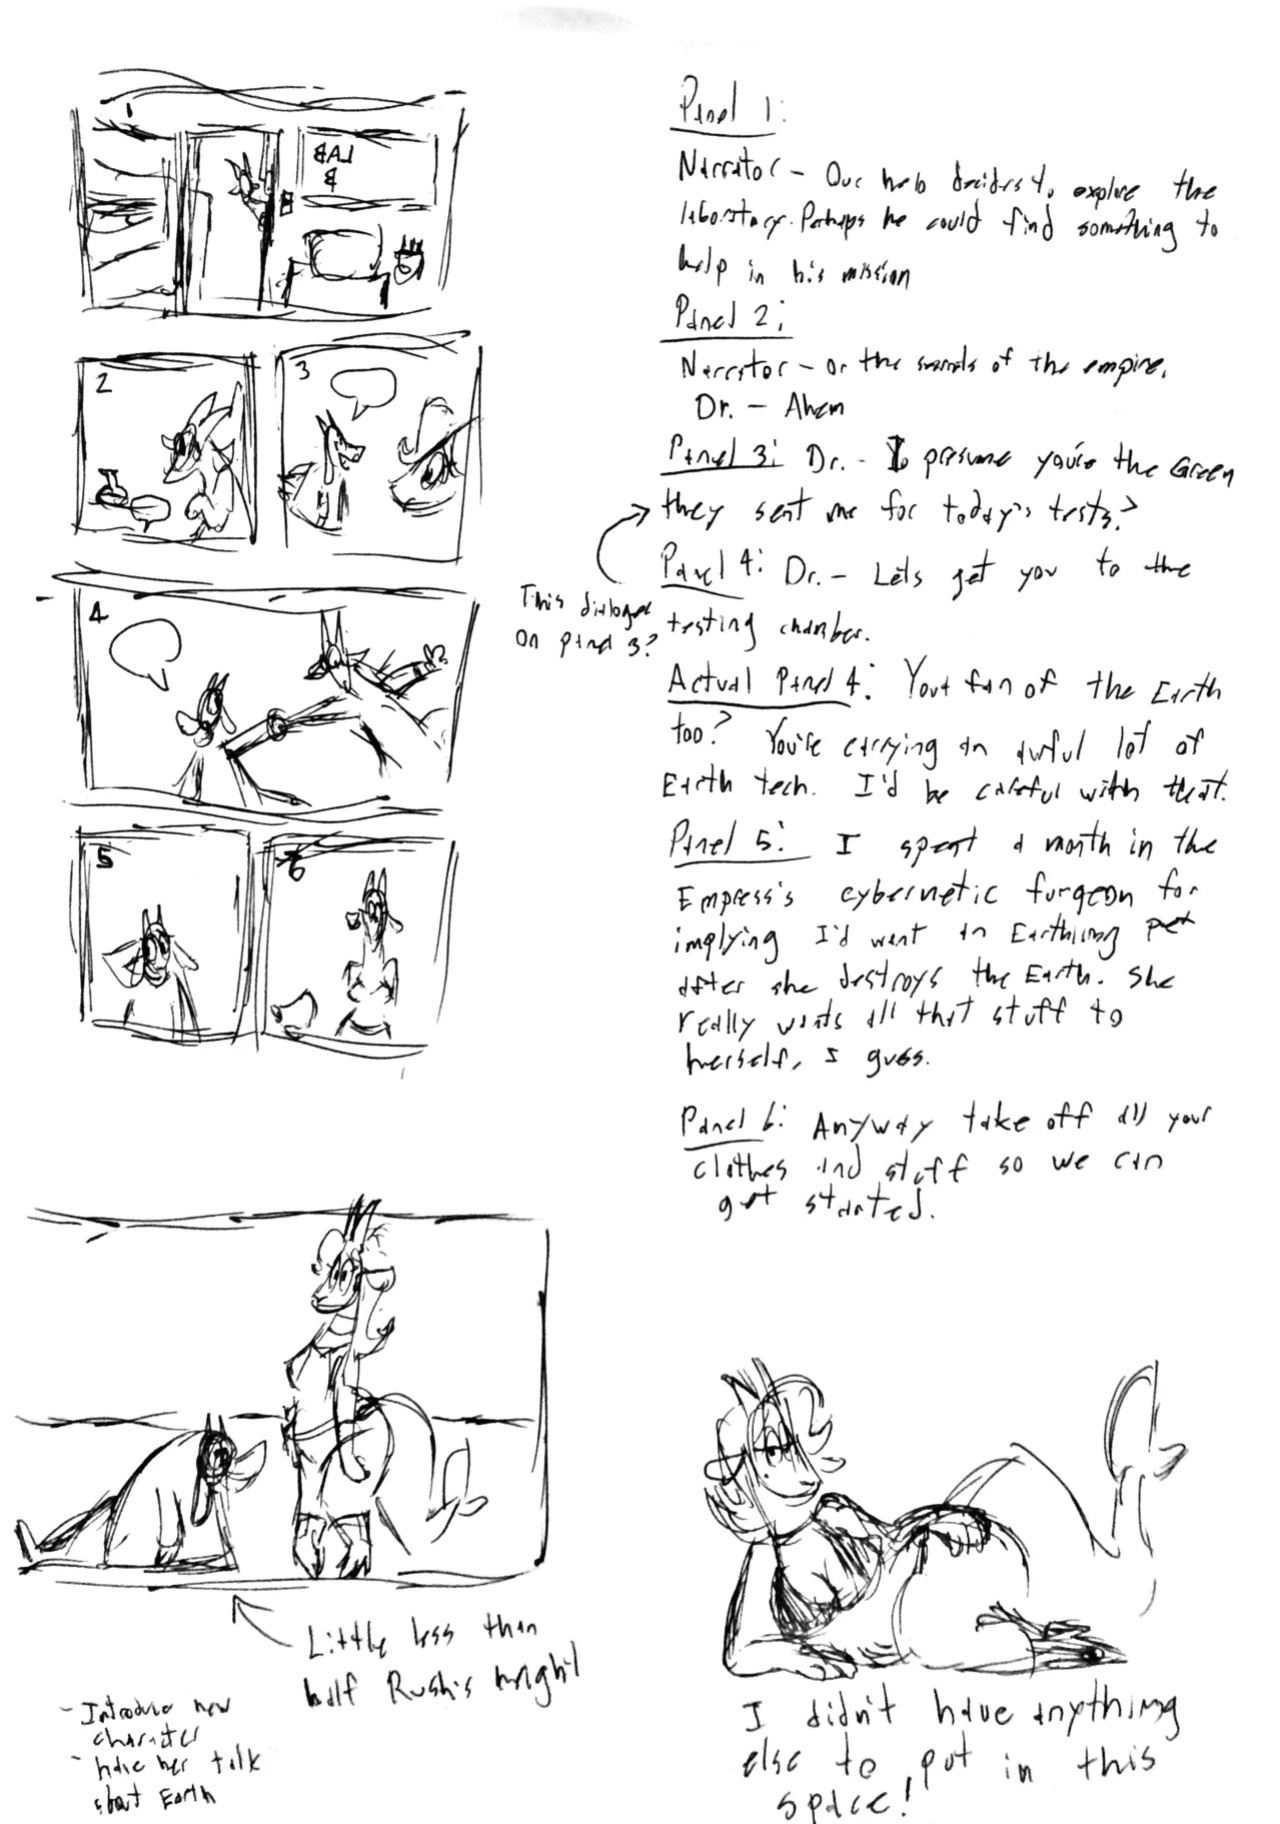 1
LAB
B
2
3
4
5
6
Panel 1:
Narrator - Our hero decides to explore the
laboratory. Perhaps he could find something to
help in his mission
Panel 2:
Narrator - Or the secrets of the empire.
Dr. - Ahem
Panel 3: Dr. - I presume you're the Green
they sent me for today's tests?
Panel 4: Dr. - Lets get you to the
testing chamber.
This dialogue
on panel 3?
Actual Panel 4: Your fan of the Earth
too? You're carrying an awful lot of
Earth tech. I'd be careful with that.
Panel 5: I spent a month in the
Empress's cybernetic furgeon for
implying I'd want an Earthling pet
after she destroys the Earth. She
really wants all that stuff to
herself, I guess.
Panel 6: Anyway take off all your
clothes and stuff so we can
get started.
Little less than
half Rush's height
- Introduce new
character
- have her talk
about Earth
I didn't have anything
else to put in this
space!